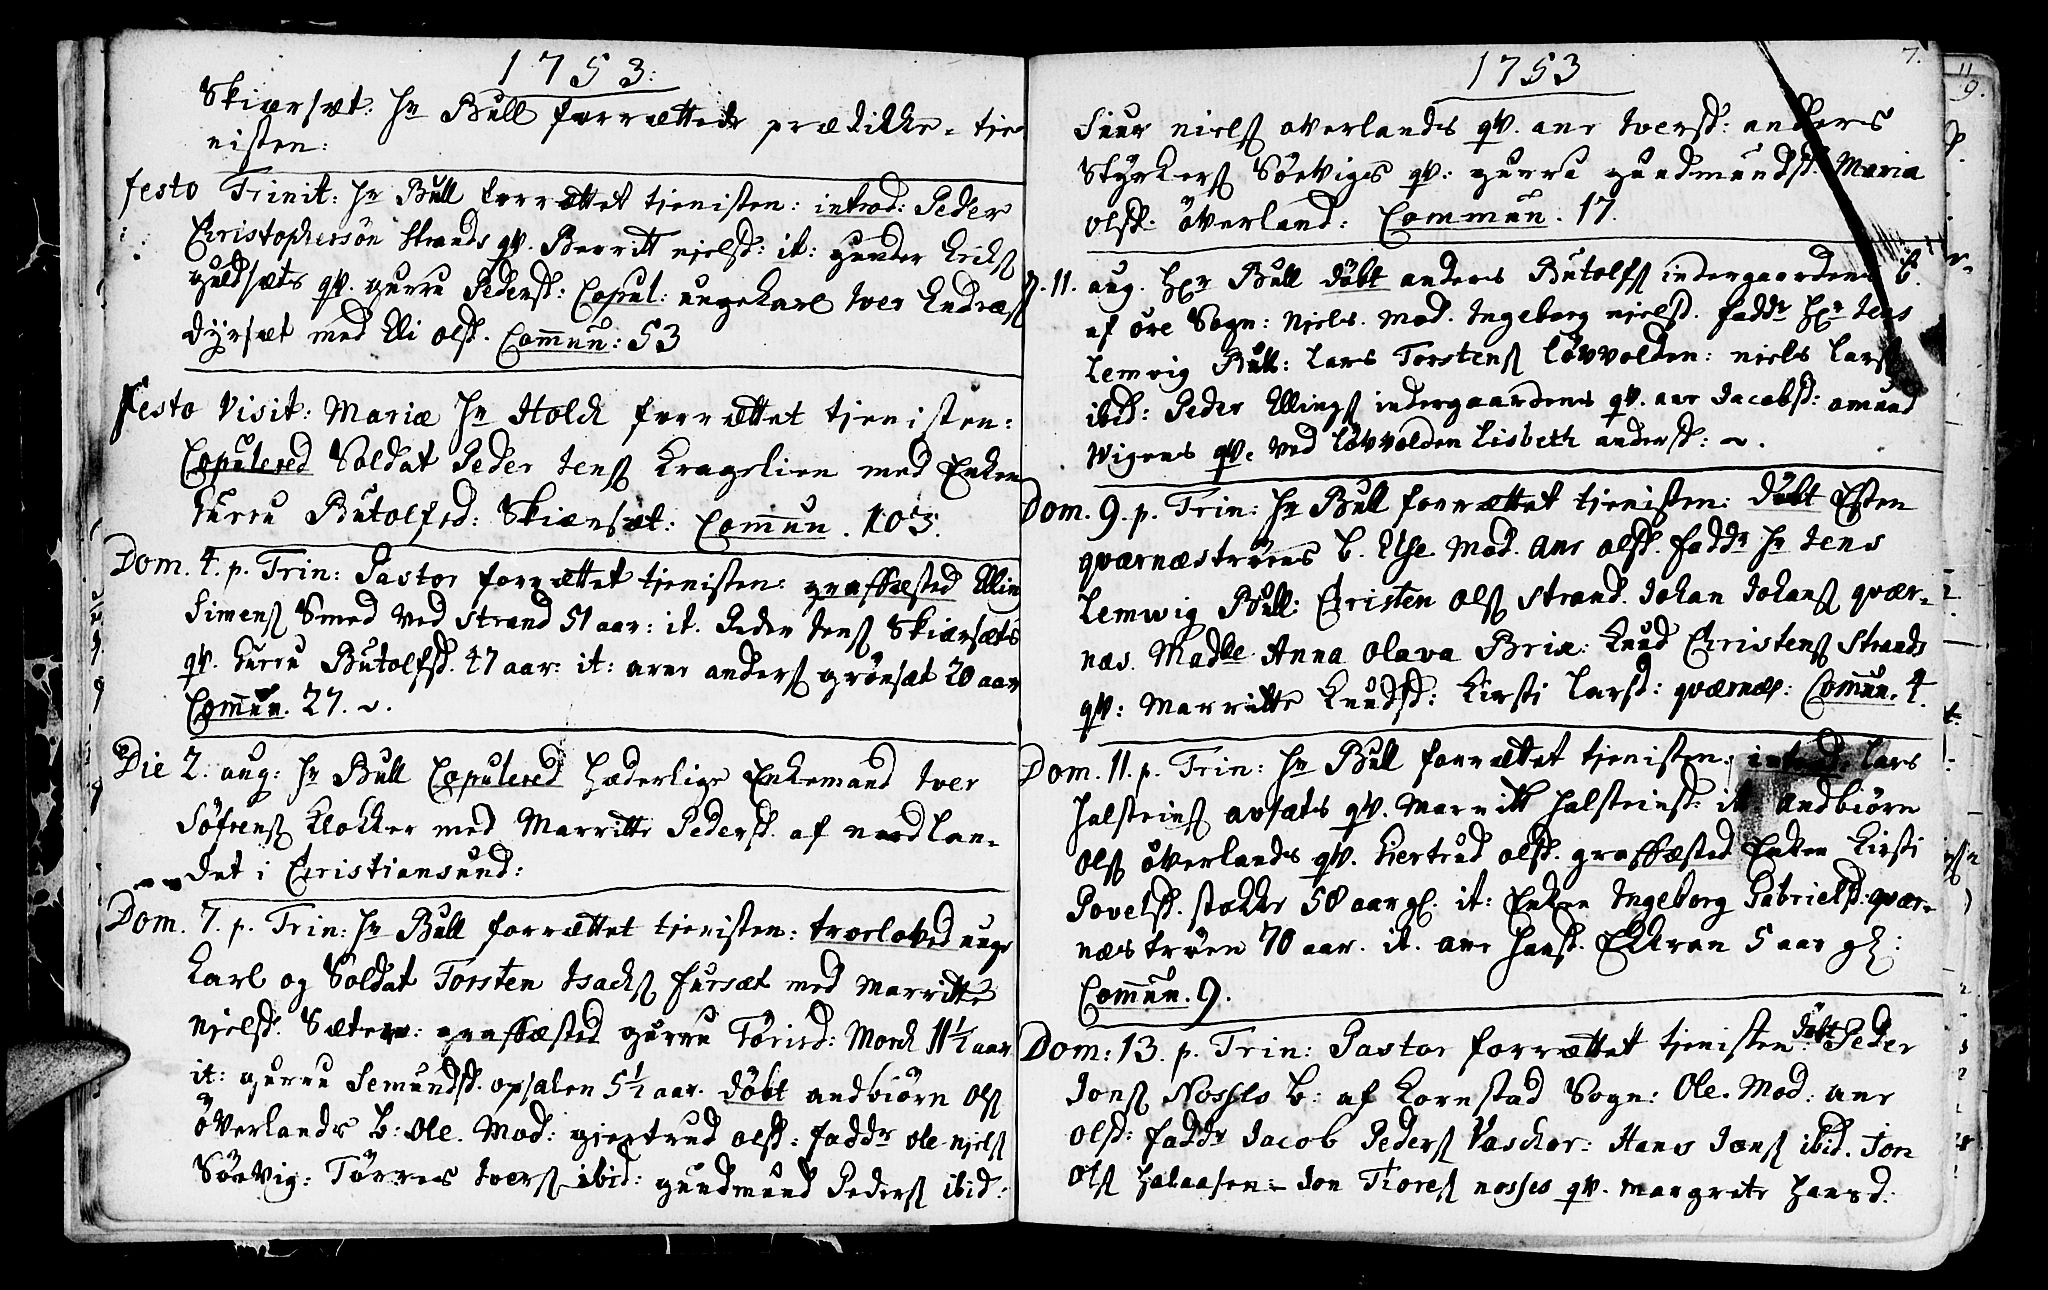 1753:
Skiærsæt: Hr Bull forrættede prædikke-tje
nisten:
festo Trinit: Hr Bull forrættet tjenisten: introd: Peder
Christophersön Strands qv. Berritt njelsd: it: gunder Eriks
guldsæts qv. gurru Pedersd: Copul: ungekarl Iver Endræs
dyrsæt med Eli olsd. Commun: 53
festo Visit: Mariæ Hr Holch forrættet tjenisten:
Copulered Soldat Peder Jens Kragelien med Enken
gurru Butolfsd: Skiærsæt: Commun. 103.
Dom. 4. p. Trin: Pastor forrættet tjenisten: graffæsted Elling
Simens Smed ved Strand 51 aar: it. Peder Jens Skiærsæts
qv. gurru Butolfsd. 47 aar: it: arne anders grönsæt 20 aar
Commun. 27.
Die 2. aug: Hr Bull Copulered hæderlige Enkemand Iver
Söfrens Klokker med Marritte Pedersd. af nordlan-
det i Christiansund:
Dom. 7. p. Trin: Hr Bull forrættet tjenisten: troeloved unge
karl og Soldat Torsten Isachs fursæt med Marritte
Njelsd. Sæter: graffæsted gurru Törisd: Morch 11½ aar
it: gurru Semundsd. opsalen 5½ aar. döbt andbiörn Ols
överlands b: Ole. Mod: giertrud olsd: faddr ole njels
Söevig: Törres Ivers ibid: gundmund Peders ibid:
1753
7.
Siur niels overlands qv. ane Iversd: anders
Styrkers Söeviges qv: gurru gundmundsd. Maria
olsd. överland: Commun. 17.
D. 11. aug. Hr Bull döbt anders Butolfs indergaardens b.
af öre Sogn: Njels. Mod. Ingeborg njelsd. faddr Hr Jens
Lemvig Bull: Lars Torstens lövvolden: niels lars
ibid: Peder Ellings indergaardens qv. ane Jacobsd: amund
Wigens qv. ved lövvolden Lisbeth andersd:
Dom. 9. p. Trin: Hr Bull forrættet tjenisten: döbt Esten
qværnæströens b. Else Mod. Ane olsd. faddr Hr Jens
Lemwig Bull: Christen Ols Strand. Johan Johans qvær-
næs. Madlle Anna Olava Brix: Knud Christens Strands
qv: Marritte Knudsd: Kirsti larsd: qværnæs: Commun. 4.
Dom. 11. p. Trin: Hr Bull forrættet tjenisten: introd. Lars
halsteins avsæts qv. Marritt halsteinsd: it: andbiörn
Ols överlands qv. giertrud olsd. graffæsted Enken Kirsti
Povelsd. stokke 58 aar gl. it: Enken Ingeborg Gabrielsd. qvær-
næströen 70 aar. it. ane hansd. Ekkran 5 aar gl:
Commun. 9.
Dom: 13. p. Trin: Pastor forrættet tjenisten: döbt Peder
Jons Nosses b: af Kornstad Sogn: Ole. Mod: ane
olsd: faddr Jacob Peders Vaschar: Hans Jens ibid. Jon
Ols halaasen: Jon Tores nosses qv. margrete hansd.